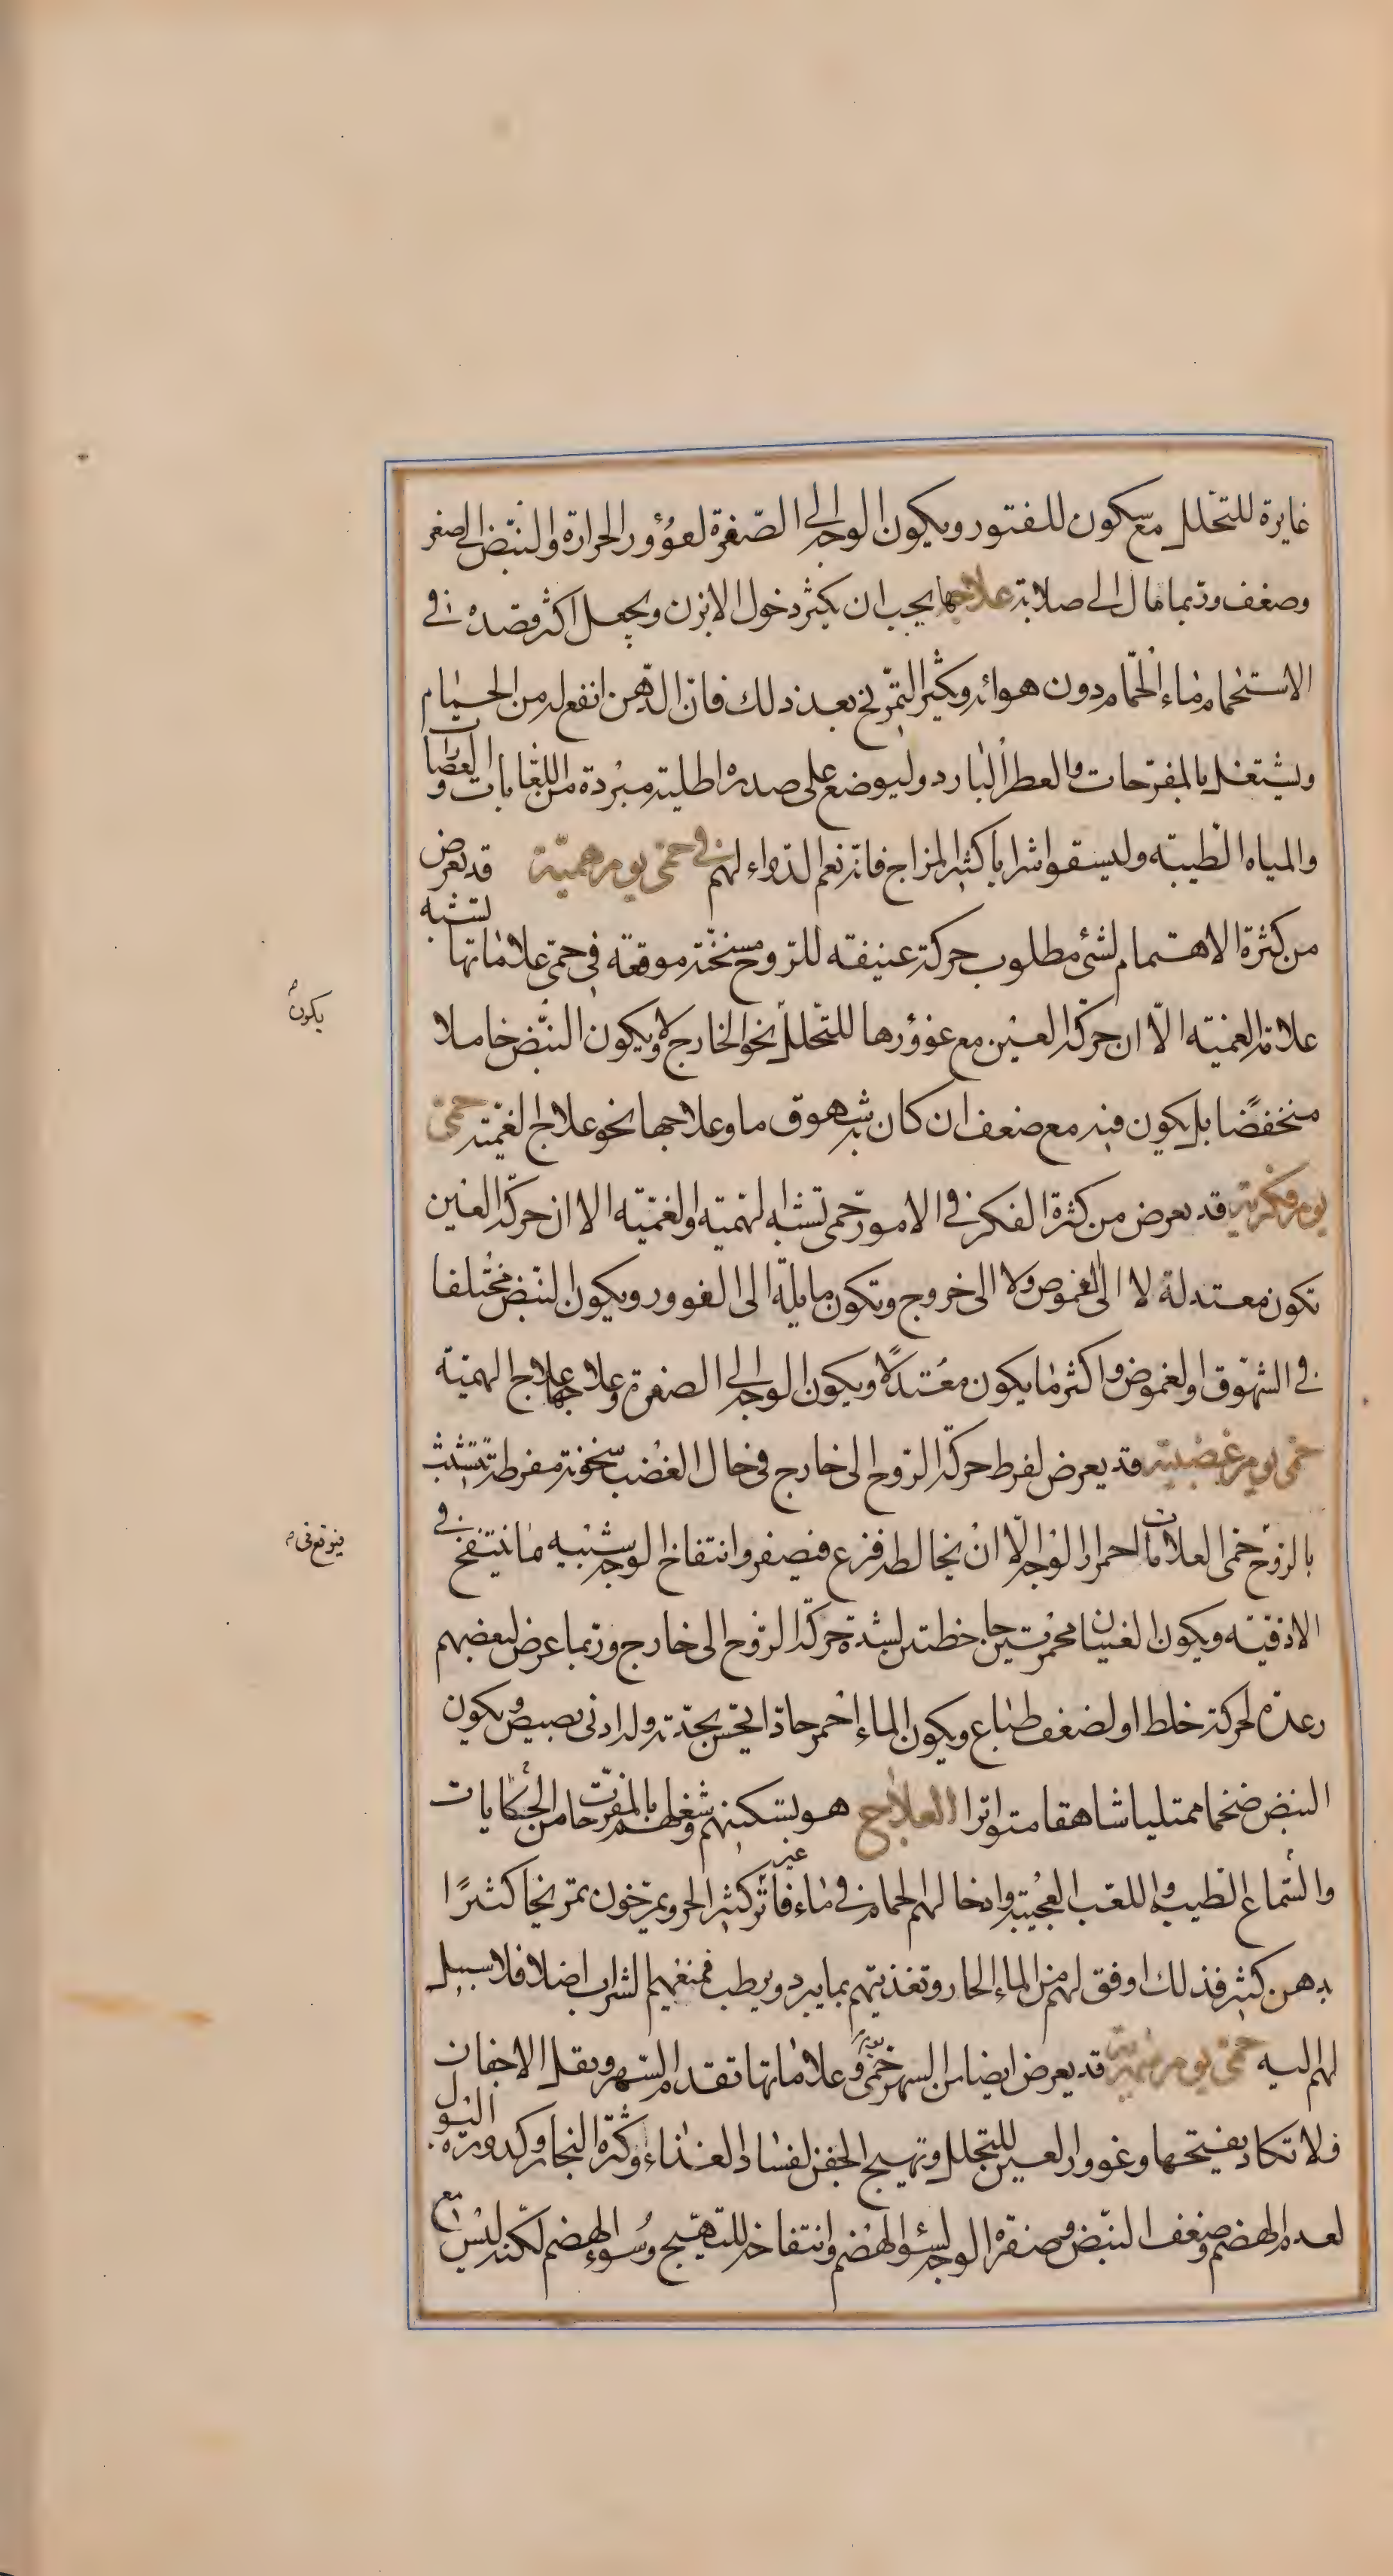 غايرة للتحلل مع سكون للفتور ويكون الوجه الى الصفرة لغوؤر الحرارة والنبض الى صغر
وضعف وربما مال الى صلابة علاجها يجب ان يكثر دخول الابزن ويجعل اكثر قصده في
الاستحمام ماء الحمام دون هوائه ويكثر التمريخ بعد ذلك فان الدهن انفع له من الحمام
ويشتغل بالمفرحات والعطر البارد وليوضع على صدره اطلية مبردة من اللعابات والعصارات
والمياه الطيبة وليسقوا شرابا كثير المزاج فانه نعم الدواء لهم في حمى يوم همية قد يعرض
من كثرة الاهتمام لشئ مطلوب حركة عنيفة للروح مسخنة موقعة في حمى علاماتها تشبه
علامة الغمية الا ان حركة العين مع غوؤرها للتحلل نحو الخارج ولا يكون النبض خاملا
يكون
منخفضا بل يكون فيه مع ضعف ان كان به شهوق ما وعلاجها نحو علاج الغمية حمى
يوم فكرية قد يعرض من كثرة الفكر في الامور حمى تشابه الهمية والغمية الا ان حركة العين
تكون معتدلة لا الى الغموض ولا الى خروج وتكون مايلة الى الغوور ويكون النبض مختلفا
في الشهوق والغموض واكثر ما يكون معتدلا ويكون الوجه الى الصفرة وعلاجها علاج الهمية
حمى يوم غضبية قد يعرض لفرط حركة الروح الى خارج في حال الغضب سخونة مفرطة تتشبث
بالروح حمى العلامات احمرار الوجه الا ان يخالطه فزع فيصفر وانتفاخ الوجه شبيه ما ينتفخ في
فيوقع في
الاذقية ويكون العينان محمرتين جاحظتين لشدة حركة الروح الى خارج وربما عرض لبعضهم
رعدة لحركة خلط او لضعف طباع ويكون الماء احمر حادا يحس بحدته وله ادنى بصيص ويكون
النبض ضخما ممتليا شاهقا متواترا العلاج هو تسكينهم وشغلهم بالمفرحات من الحكايات
والسماع الطيب واللعب العجيبة وادخالهم الحمام في ماء فاتر غير كثير الحر ويمرخون تمريخا كثيرا
بدهن كثير فذلك اوفق لهم من الماء الحار وتغذيتهم بما يبرد ويرطب فمنعهم الشراب اصلا فلا سبيل
لهم اليه حمى يوم سهرية قد يعرض ايضا من السهر حمى يوم وعلاماتها تقدم السهر وثقل الاجفان
فلا تكاد يفتحها وغوور العين للتحلل وتهيج الجفن لفساد الغذاء وكثرة البخار وكدورة البول
لعدم الهضم وضعف النبض وصفرة الوجه لسوء الهضم وانتفاخه للتهيج وسوء الهضم لكنه ليس مع